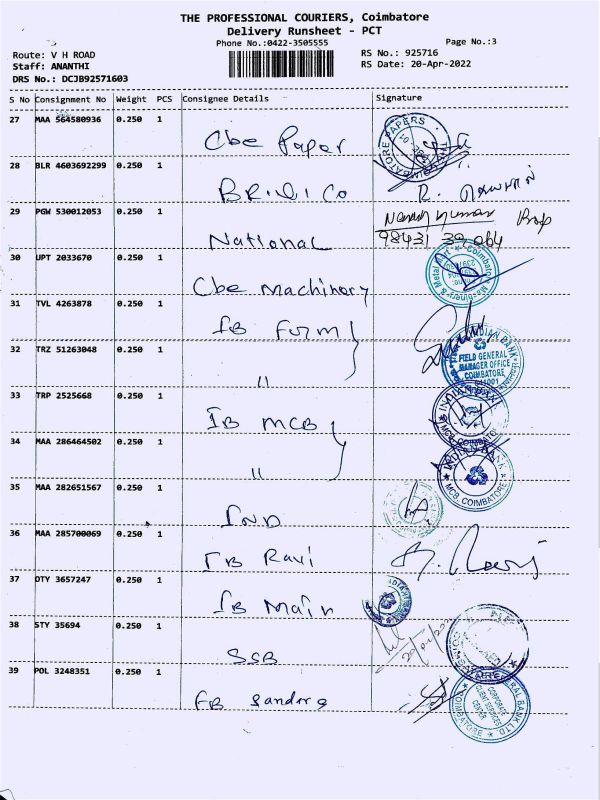 THE PROFESSIONAL COURIERS, Coimbatore
Delivery Runsheet - PCT
Phone No.:0422-3505555
Page No.:3
Route: V H ROAD
RS No.: 925716
Staff: ANANTHI
RS Date: 20-Apr-2022
DRS No.: DCJB92571603
S No Consignment No Weight PCS Consignee Details Signature
27 MAA 564580936 0.250 1 Cbe Paper
COIMBATORE PAPERS
28 BLR 4603692299 0.250 1
29 PGW 530012053 0.250 1 National
98431 39064
30 UPT 2033670 0.250 1 Cbe Machinery
Coimbatore Machinery & Metal Mart
31 TVL 4263878 0.250 1 IB Form
32 TRZ 51263048 0.250 1 "
INDIAN BANK
FIELD GENERAL
MANAGER OFFICE
COIMBATORE
641001
33 TRP 2525668 0.250 1 IB MCB
INDIAN BANK
MCB, COIMBATORE
34 MAA 286464502 0.250 1 "
INDIAN BANK
MCB, COIMBATORE
35 MAA 282651567 0.250 1 IND
36 MAA 285700069 0.250 1 IB Ravi
37 OTY 3657247 0.250 1 IB Main
38 STY 35694 0.250 1 SSB
39 POL 3248351 0.250 1 FB
FEDERAL BANK LTD
CORPORATE
CLIENT SERVICES
CENTER
COIMBATORE